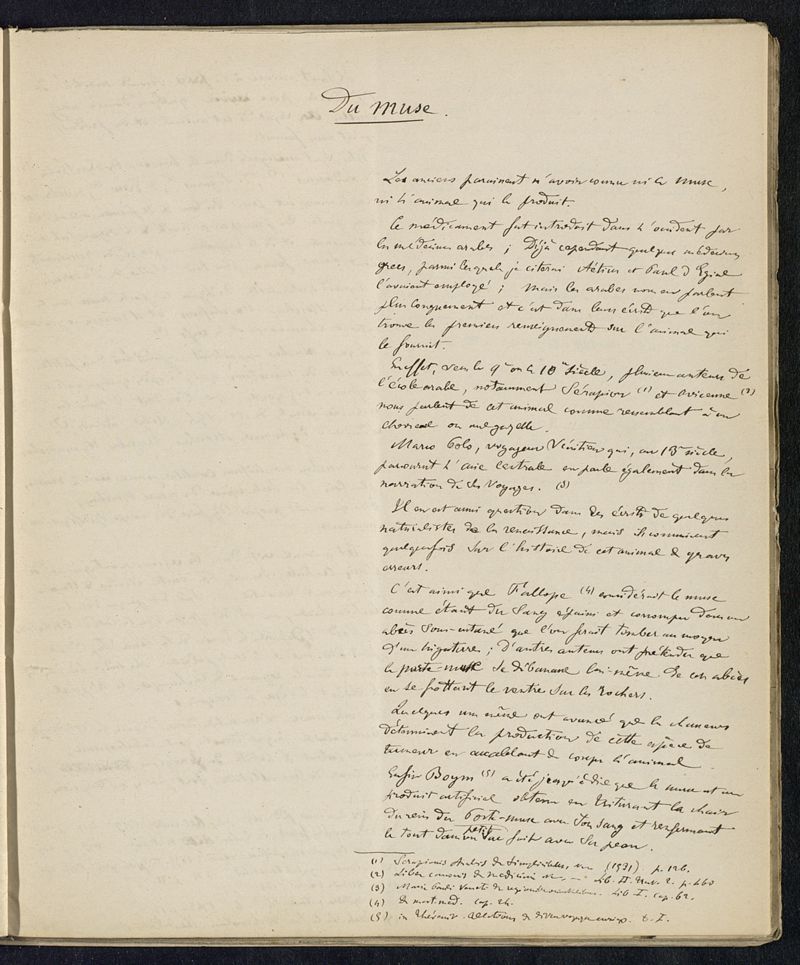 Du Musc.
Les anciens paraissent n'avoir connu ni le musc,
ni l'animal qui le produit.
Ce médicament fut introduit dans l'occident par
les médecins arabes ; Déjà cependant quelques médecins
grecs, parmi lesquels je citerai Aétius et Paul d'Egine
l'avaient employé ; mais les arabes nous en parlent
plus longuement et c'est dans leurs écrits que l'on
trouve les premiers renseignements sur l'animal qui
le fournit.
En effet, vers le 9e ou le 10me siècle, plusieurs auteurs de
l'école arabe, notamment Sérapion (1) et Avicenne (2)
nous parlent de cet animal comme ressemblant à un
chevreuil ou une gazelle.
Marco Polo, voyageur Vénitien qui, au 13e siècle,
parcourut l'asie centrale en parle également dans la
narration de ses Voyages. (3)
Il en est aussi question dans les écrits de quelques
naturalistes de la renaissance, mais ils commirent
quelquefois sur l'histoire de cet animal de graves
erreurs.
C'est ainsi que Fallope (4) considérait le musc
comme étant du sang épaissi et corrompu dans un
abcès sous-cutané que l'on ferait tomber au moyen
d'une ligature ; D'autres auteurs ont prétendu que
le porte-musc se débarrasse lui-même de son abcès
en se frottant le ventre sur les rochers.
Quelques uns même ont avancé que les chasseurs
déterminent la production de cette espèce de
tumeur en accablant de coups l'animal.
Enfin Boym (5) a été jusqu'à dire que le musc est un
produit artificiel obtenu en triturant la chair
du rein du Porte-musc avec son sang et renfermant
le tout dans un petit sac fait avec sa peau.
(1) Serapionis Arabis de Simplicibus (1531) p. 126.
(2) Liber canonis de medicinis Lib. II. Trac. 2. p. 460
(3) Marci Pauli Veneti de regionibus orientalibus. Lib I. cap. 62.
(4) de mat. med. Cap. 24.
(5) in Thévenot. Relations de divers voyages curieux. t. I.